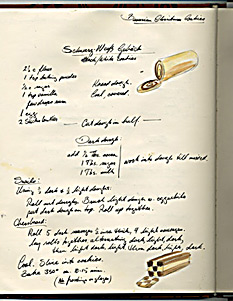 Bavarian Christmas Cookies
Schwarz-Weiss Gebäck
Black/White Cookies
2½ c flour
1 tsp baking powder
⅔ c sugar
1 tsp vanilla
few drops rum
1 egg
2 sticks butter
Knead dough.
Cool, covered.
Cut dough in half
Dark dough:
add ¼ c cocoa
1 Tbs. sugar
1 Tbs. milk
work into dough till mixed.
Snails:
Using ½ dark & ½ light doughs:
Roll out doughs. Brush light dough w. eggwhite
put dark dough on top. Roll up together.
Checkerboard:
Roll 5 dark 1 inch thick, 4 light
lay rolls together alternating dark, light, dark,
then light, dark, light, then dark, light, dark.
Cool. Slice into cookies.
Bake 350° 8-15 min.
(No frosting or glaze)